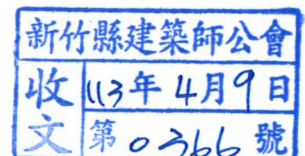 新竹縣建築師公會
收文
113年4月9日
第0366號